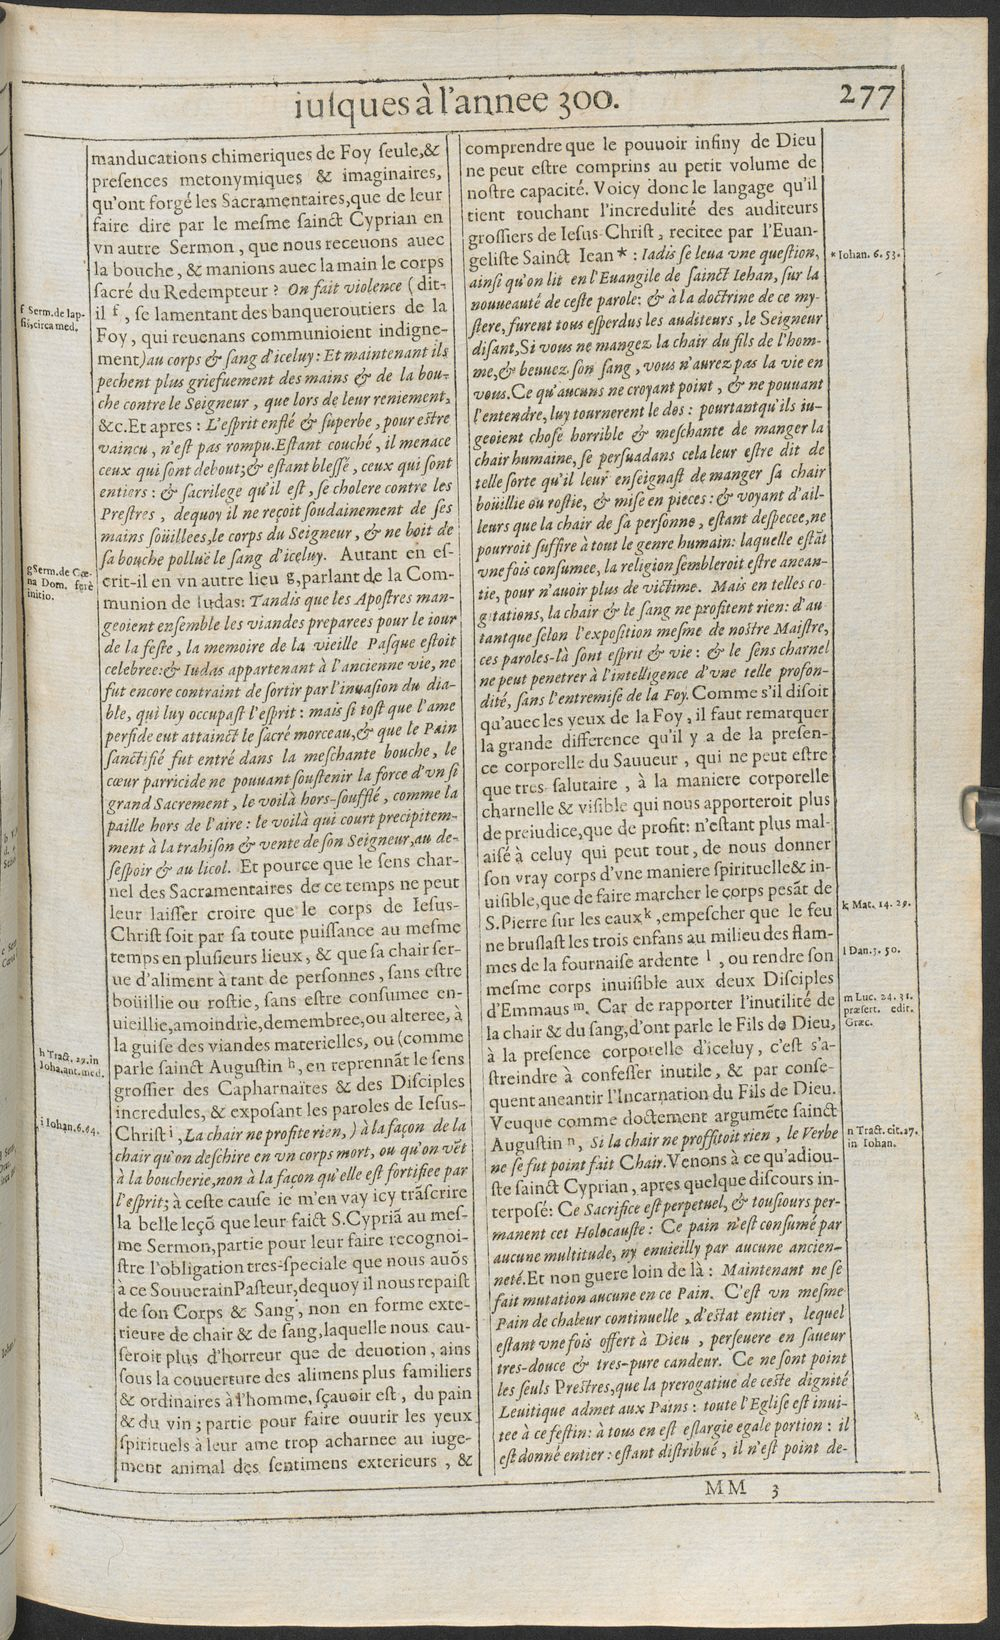 iuſques à l'annee 300.
277
manducations chimeriques de Foy ſeule,&
preſences metonymiques & imaginaires,
qu'ont forgé les Sacramentaires,que de leur
faire dire par le meſme ſainct Cyprian en
vn autre Sermon, que nous receuons auec
la bouche, & manions auec la main le corps
ſacré du Redempteur ? On fait violence (dit-
il f, ſe lamentant des banqueroutiers de la
Foy, qui reuenans communioient indigne-
ment)au corps & ſang d'iceluy: Et maintenant ils
pechent plus griefuement des mains & de la bou-
che contre le Seigneur, que lors de leur reniement,
&c.Et apres : L'eſprit enflé & ſuperbe, pour eſtre
vaincu, n'eſt pas rompu.Eſtant couché, il menace
ceux qui ſont debout;& eſtant bleſſé, ceux qui ſont
entiers : & ſacrilege qu'il eſt, ſe cholere contre les
Preſtres, dequoy il ne reçoit ſoudainement de ſes
mains ſoüillees,le corps du Seigneur, & ne boit de
ſa bouche polluë le ſang d'iceluy. Autant en eſ-
crit-il en vn autre lieu g,parlant de la Com-
munion de Iudas: Tandis que les Apoſtres man-
geoient enſemble les viandes preparees pour le iour
de la feſte, la memoire de la vieille Paſque eſtoit
celebree:& Iudas appartenant à l'ancienne vie, ne
fut encore contraint de ſortir par l'inuaſion du dia-
ble, qui luy occupaſt l'eſprit : mais ſi toſt que l'ame
perfide eut attainct le ſacré morceau,& que le Pain
ſanctifié fut entré dans la meſchante bouche, le
cœur parricide ne pouuant ſouſtenir la force d'vn ſi
grand Sacrement, le voilà hors-ſoufflé, comme la
paille hors de l'aire : le voilà qui court precipitem-
ment à la trahiſon & vente de ſon Seigneur,au de-
ſeſpoir & au licol. Et pource que le ſens char-
nel des Sacramentaires de ce temps ne peut
leur laiſſer croire que le corps de Ieſus-
Chriſt ſoit par ſa toute puiſſance au meſme
temps en pluſieurs lieux, & que ſa chair ſer-
ue d'aliment à tant de perſonnes, ſans eſtre
boüillie ou roſtie, ſans eſtre conſumee en-
uieillie,amoindrie,demembree,ou alteree, à
la guiſe des viandes materielles, ou (comme
parle ſainct Auguſtin h, en reprennāt le ſens
groſſier des Capharnaïtes & des Diſciples
incredules, & expoſant les paroles de Ieſus-
Chriſt i, La chair ne profite rien, ) à la façon de la
chair qu'on deſchire en vn corps mort, ou qu'on vēt
à la boucherie,non à la façon qu'elle eſt fortifiee par
l'eſprit; à ceſte cauſe ie m'en vay icy trãſcrire
la belle leçõ que leur faict S.Cypriā au meſ-
me Sermon,partie pour leur faire recognoi-
ſtre l'obligation tres-ſpeciale que nous auõs
à ce Souuerain Paſteur,dequoy il nous repaiſt
de ſon Corps & Sang, non en forme exte-
rieure de chair & de ſang,laquelle nous cau-
ſeroit plus d'horreur que de deuotion, ains
ſous la couuerture des alimens plus familiers
& ordinaires à l'homme, ſçauoir eſt, du pain
& du vin ; partie pour faire ouurir les yeux
ſpirituels à leur ame trop acharnee au iuge-
ment animal des ſentimens exterieurs, &
f Serm.de lap-
ſis,circa med.
g Serm.de Cœ-
na Dom. ferè
initio.
h Tract. 29.in
Joha.ant.med.
i Iohan.6.64.
comprendre que le pouuoir infiny de Dieu
ne peut eſtre comprins au petit volume de
noſtre capacité. Voicy donc le langage qu'il
tient touchant l'incredulité des auditeurs
groſſiers de Ieſus-Chriſt, recitee par l'Euan-
geliſte Sainct Iean * : Iadis ſe leua vne queſtion,
ainſi qu'on lit en l'Euangile de ſainct Iehan, ſur la
nouueauté de ceſte parole: & à la doctrine de ce my-
ſtere, furent tous eſperdus les auditeurs, le Seigneur
diſant,Si vous ne mangez la chair du fils de l'hom-
me,& beuuez ſon ſang, vous n'aurez pas la vie en
vous.Ce qu'aucuns ne croyant point, & ne pouuant
l'entendre, luy tournerent le dos : pourtant qu'ils iu-
geoient choſe horrible & meſchante de manger la
chair humaine, ſe perſuadans cela leur eſtre dit de
telle ſorte qu'il leur enſeignaſt de manger ſa chair
boüillie ou roſtie, & miſe en pieces : & voyant d'ail-
leurs que la chair de ſa perſonne, eſtant deſpecee,ne
pourroit ſuffire à tout le genre humain: laquelle eſtāt
vne fois conſumee, la religion ſembleroit eſtre anean-
tie, pour n'auoir plus de victime. Mais en telles co-
gitations, la chair & le ſang ne profitent rien: d'au
tant que ſelon l'expoſition meſme de noſtre Maiſtre,
ces paroles-là ſont eſprit & vie : & le ſens charnel
ne peut penetrer à l'intelligence d'vne telle profon-
dité, ſans l'entremiſe de la Foy. Comme s'il diſoit
qu'auec les yeux de la Foy, il faut remarquer
la grande difference qu'il y a de la preſen-
ce corporelle du Sauueur, qui ne peut eſtre
que tres-ſalutaire, à la maniere corporelle
charnelle & viſible qui nous apporteroit plus
de preiudice,que de profit: n'eſtant plus mal-
aiſé à celuy qui peut tout, de nous donner
ſon vray corps d'vne maniere ſpirituelle& in-
uiſible,que de faire marcher le corps peſāt de
S.Pierre ſur les eaux k, empeſcher que le feu
ne bruſlaſt les trois enfans au milieu des flam-
mes de la fournaiſe ardente l, ou rendre ſon
meſme corps inuiſible aux deux Diſciples
d'Emmaus m. Car de rapporter l'inutilité de
la chair & du ſang,d'ont parle le Fils de Dieu,
à la preſence corporelle d'iceluy, c'eſt s'a-
ſtreindre à confeſſer inutile, & par conſe-
quent aneantir l'Incarnation du Fils de Dieu.
Veuque comme doctement argumēte ſainct
Auguſtin n, Si la chair ne proffitoit rien, le Verbe
ne ſe fut point fait Chair.Venons à ce qu'adiou-
ſte ſainct Cyprian, apres quelque diſcours in-
terpoſé: Ce Sacrifice eſt perpetuel, & touſiours per-
manent cet Holocauſte : Ce pain n'eſt conſumé par
aucune multitude, ny enuieilly par aucune ancien-
neté.Et non guere loin de là : Maintenant ne ſe
fait mutation aucune en ce Pain. C'eſt vn meſme
Pain de chaleur continuelle, d'eſtat entier, lequel
eſtant vne fois offert à Dieu, perſeuere en ſaueur
tres-douce & tres-pure candeur. Ce ne ſont point
les ſeuls Preſtres,que la prerogatiue de ceſte dignité
Leuitique admet aux Pains : toute l'Egliſe eſt inui-
tee à ce feſtin: à tous en eſt eſlargie egale portion : il
eſt donné entier : eſtant diſtribué, il n'eſt point de-
* Iohan. 6. 53.
k Mat. 14. 29.
l Dan.3. 50.
m Luc. 24. 31.
præſert. edit.
Græc.
n Tract. cit.27.
in Iohan.
MM 3